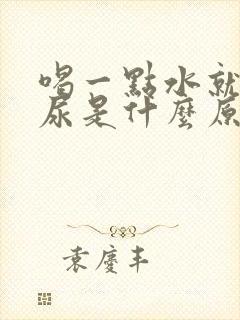 喝一點水就
尿是什麼原
袁慶丰